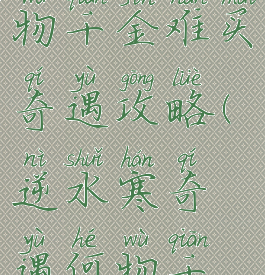 wù qiān jīn nán mǎi
物千金难买
qí yù gōng lüè
奇遇攻略(
nì shuǐ hán qí
逆水寒奇
yù hé wù qiān
遇何物千